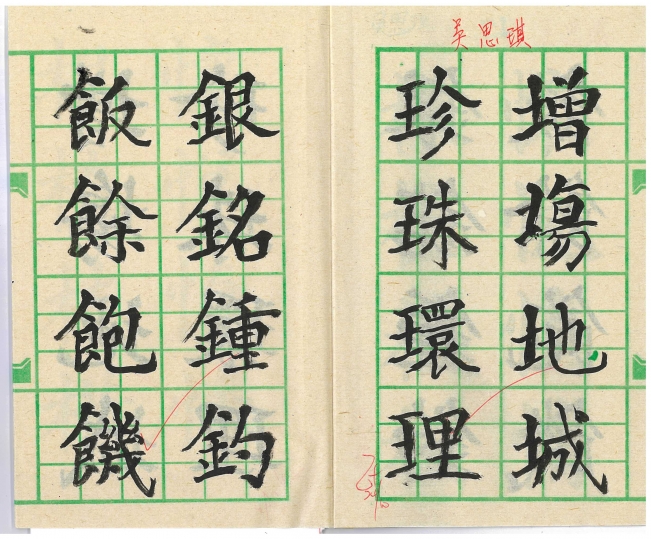 吳思琪
增場地城
珍珠環理
銀銘鍾鈞
飯餘飽饑